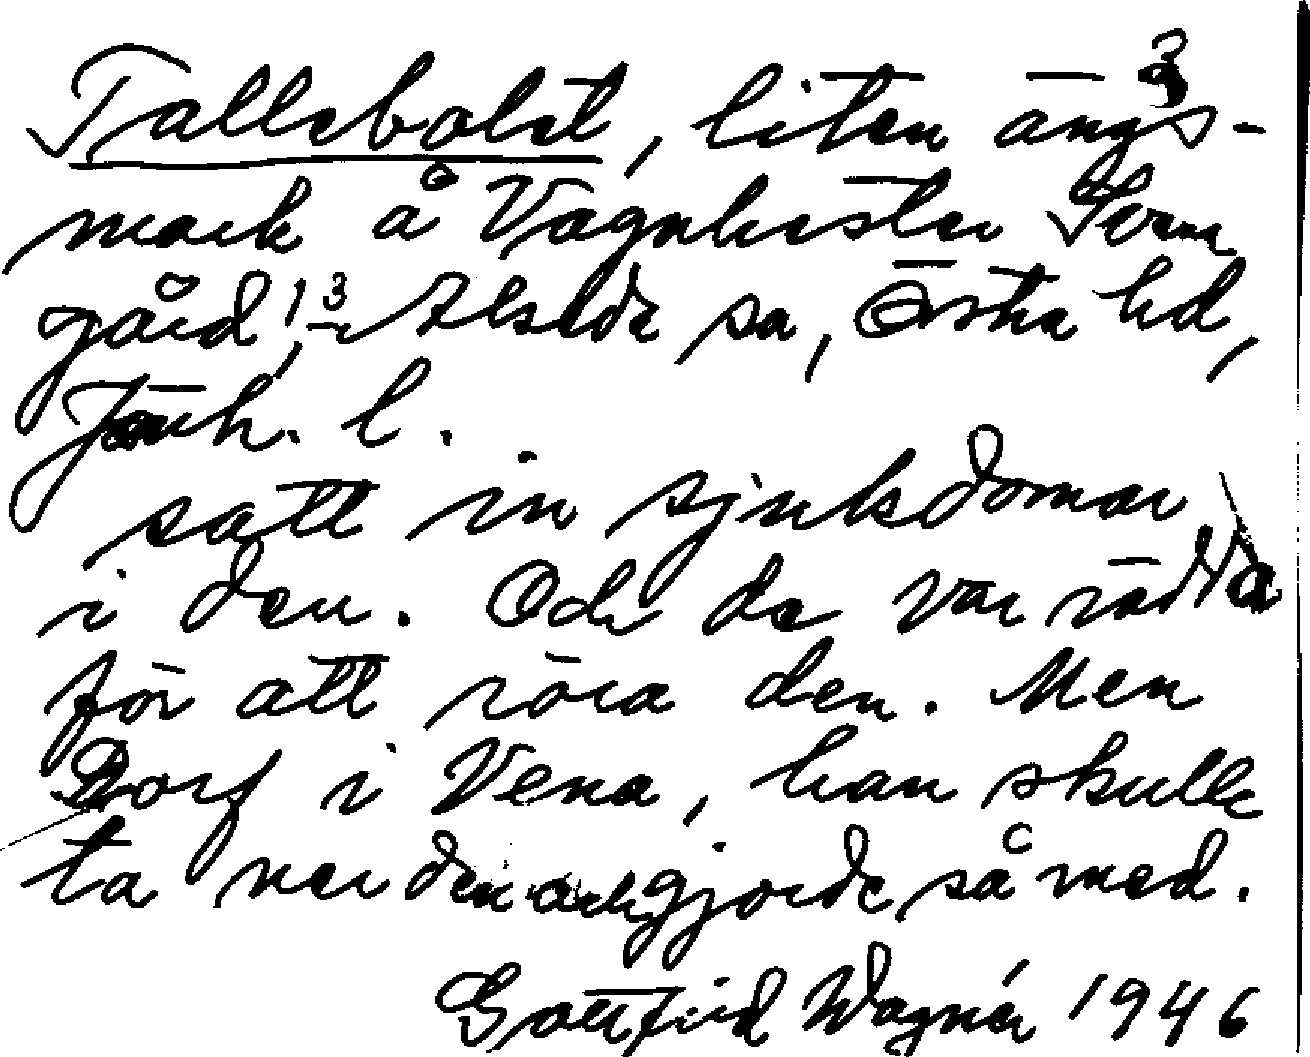 Tallebolet, liten ängs-
mark å Vagnhester Norr
gård, 1/3 Alseda sa, Östra hd,
Jönk. l.
satt in sjukdomar
i den. Och de var rädda
för att röra den. Men
Dorf i Vena, han skulle
ta ner den och gjorde så med.
Gottfrid Wagnér 1946